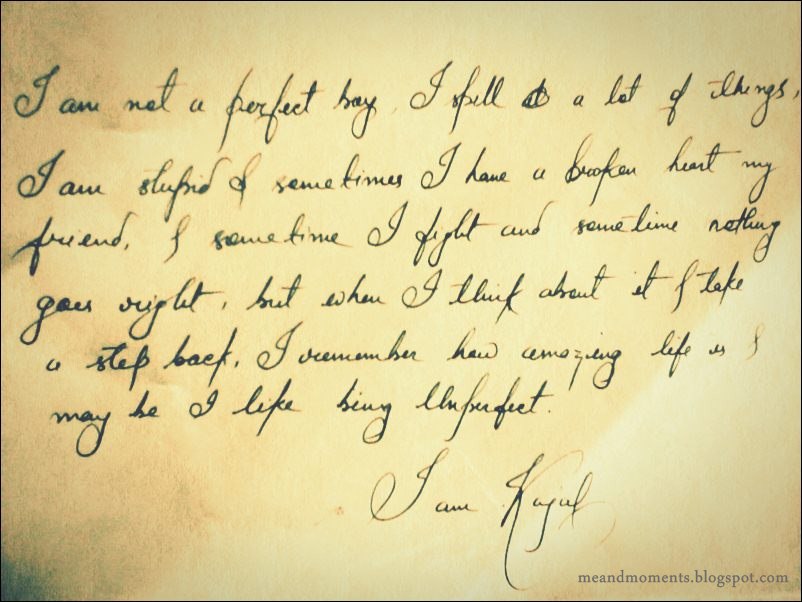 I am not a perfect boy. I spill a lot of things,
I am stupid & sometimes I have a broken heart my
friend, & sometime I fight and sometime nothing
goes right, but when I think about it & take
a step back, I remember how amazing life is &
may be I like being Unperfect.
I am Kajal
meandmoments.blogspot.com